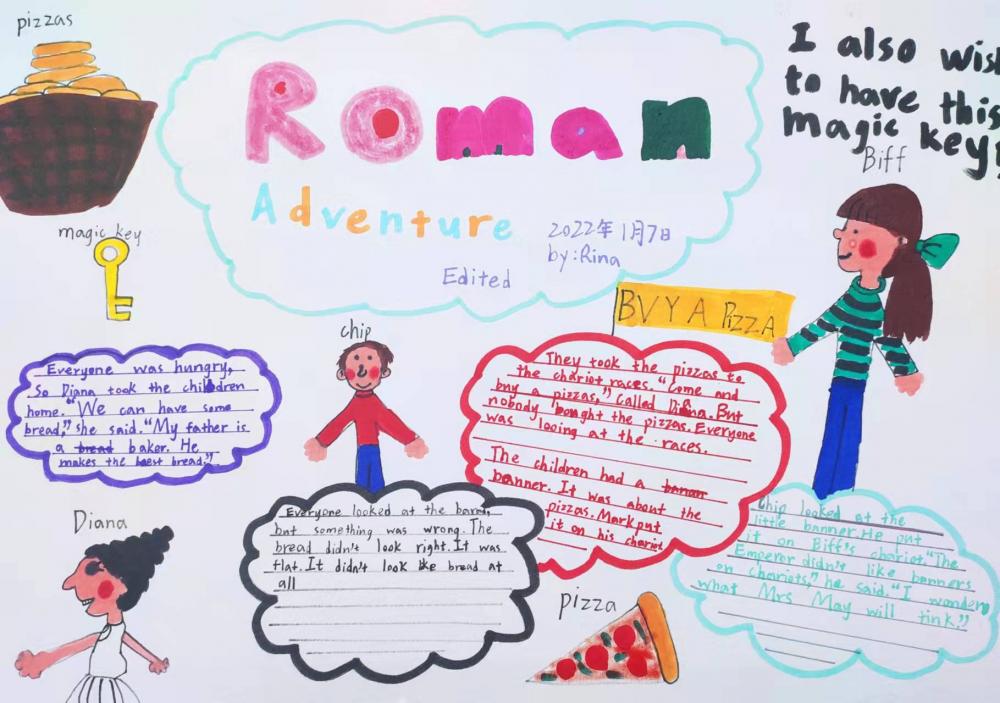 pizzas
Roman
Adventure
2022年1月7日
by: Rina
Edited
I also wish
to have this
magic key!
Biff
magic key
chip
BUY A PIZZA
Everyone was hungry,
So Diana took the children
home. "We can have some
bread," she said. "My father is
a bread baker. He
makes the best bread."
They took the pizzas to
the chariot races. "Come and
buy a pizzas," called Diana. But
nobody bought the pizzas. Everyone
was looing at the races.
The children had a
banner. It was about the
pizzas. Mark put
it on his chariot
Diana
Everyone looked at the
but something was wrong. The
bread didn't look right. It was
flat. It didn't look like bread at
all
pizza
Chip looked at the
little banner. He put
it on Biff's chariot. "The
Emperor didn't like banners
on chariots," he said. "I wonder
what Mrs May will tink."